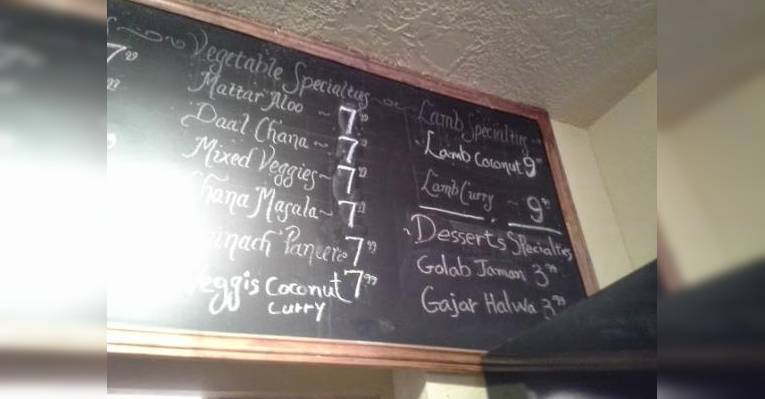 7⁹⁹
Vegetable Specialties
Mattar Aloo ~ 7⁹⁹
Daal Chana ~ 7⁹⁹
Mixed Veggies ~ 7⁹⁹
Chana Masala ~ 7⁹⁹
Paneer 7⁹⁹
Veggis Coconut 7⁹⁹
Curry
Lamb Specialties
Lamb Coconut 9⁹⁹
Lamb Curry ~ 9⁹⁹
Desserts Specialties
Golab Jaman 3⁹⁹
Gajar Halwa 3⁹⁹